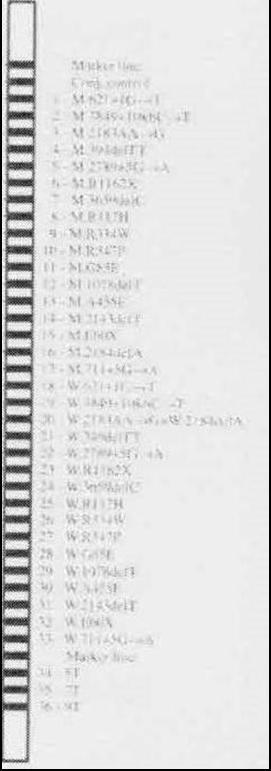 Marker line
Conj. control
1 - M.621+1G→T
2 - M.3849+10kbC→T
3 - M.2183AA→G
4 - M.394delTT
5 - M.2789+5G→A
6 - M.R1162X
7 - M.3659delC
8 - M.R117H
9 - M.R334W
10 - M.R347P
11 - M.G85E
12 - M.1078delT
13 - M.A455E
14 - M.2143delT
15 - M.E60X
16 - M.2184delA
17 - M.711+5G→A
18 - W.621+1G→T
19 - W.3849+10kbC→T
20 - W.2183AA→G+W.2184delA
21 - W.394delTT
22 - W.2789+5G→A
23 - W.R1162X
24 - W.3659delC
25 - W.R117H
26 - W.R334W
27 - W.R347P
28 - W.G85E
29 - W.1078delT
30 - W.A455E
31 - W.2143delT
32 - W.E60X
33 - W.711+5G→A
Marker line
34 - 5T
35 - 7T
36 - 9T